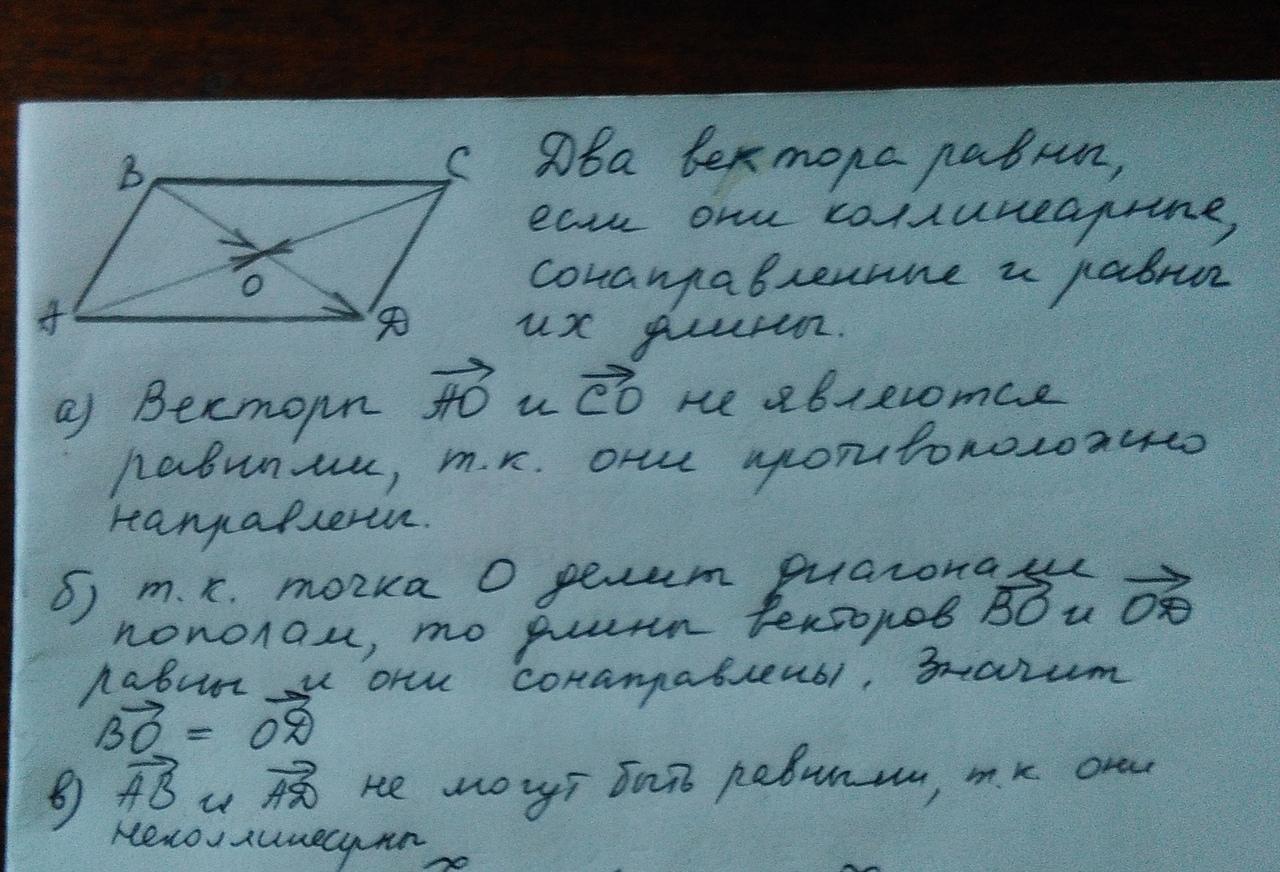 B
C
A
O
D
Два вектора равны,
если они коллинеарные,
сонаправленные и равны
их длины.
а) Векторы AO и CO не являются
равными, т.к. они противоположно
направлены.
б) т.к. точка O делит диагонали
пополам, то длины векторов BO и OD
равны и они сонаправлены. Значит
BO = OD
в) AB и AD не могут быть равными, т.к они
неколлинеарны